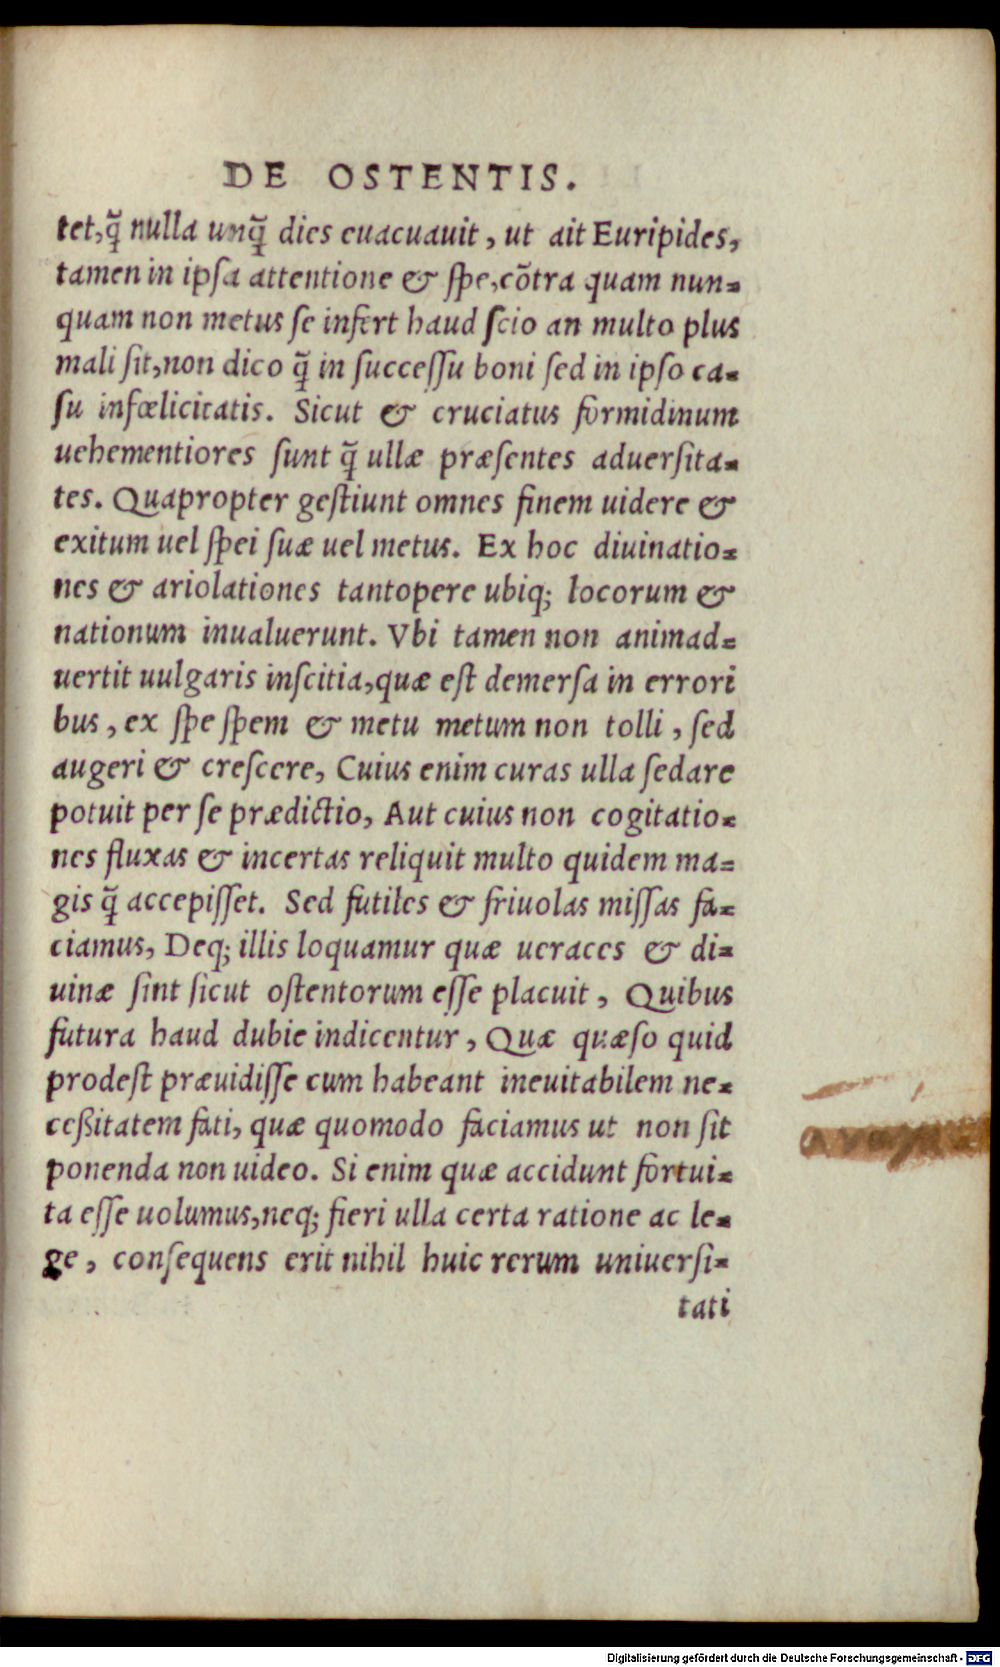 DE OSTENTIS.
tet,q̃ nulla unq̃ dies euacuauit, ut ait Euripides,
tamen in ipsa attentione & spe,cõtra quam nun=
quam non metus se infert haud scio an multo plus
mali sit,non dico q̃ in successu boni sed in ipso ca=
su infœlicitatis. Sicut & cruciatus formidinum
uehementiores sunt q̃ ullæ præsentes aduersita=
tes. Quapropter gestiunt omnes finem uidere &
exitum uel spei suæ uel metus. Ex hoc diuinatio=
nes & ariolationes tantopere ubiq; locorum &
nationum inualuerunt. Vbi tamen non animad=
uertit uulgaris inscitia,quæ est demersa in errori
bus, ex spe spem & metu metum non tolli, sed
augeri & crescere, Cuius enim curas ulla sedare
potuit per se prædictio, Aut cuius non cogitatio=
nes fluxas & incertas reliquit multo quidem ma=
gis q̃ accepisset. Sed futiles & friuolas missas fa=
ciamus, Deq; illis loquamur quæ ueraces & di=
uinæ sint sicut ostentorum esse placuit, Quibus
futura haud dubie indicentur, Quæ quæso quid
prodest præuidisse cum habeant ineuitabilem ne=
ceßitatem fati, quæ quomodo faciamus ut non sit
ponenda non uideo. Si enim quæ accidunt fortui=
ta esse uolumus,neq; fieri ulla certa ratione ac le=
ge, consequens erit nihil huic rerum uniuersi=
tati
Digitalisierung gefördert durch die Deutsche Forschungsgemeinschaft - DFG